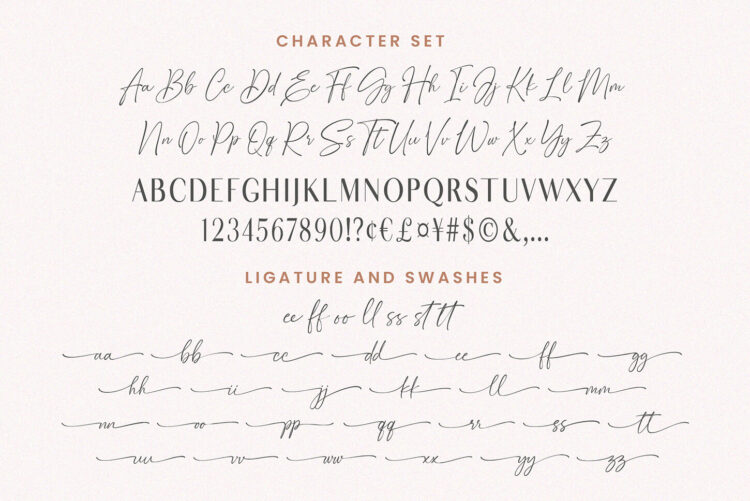 CHARACTER SET
Aa Bb Cc Dd Ee Ff Gg Hh Ii Jj Kk Ll Mm
Nn Oo Pp Qq Rr Ss Tt Uu Vv Ww Xx Yy Zz
ABCDEFGHIJKLMNOPQRSTUVWXYZ
1234567890!?¢€£¤¥#$©&,...
LIGATURE AND SWASHES
ee ff oo ll ss st tt
aa bb cc dd ee ff gg
hh ii jj kk ll mm
nn oo pp qq rr ss tt
uu vv ww xx yy zz